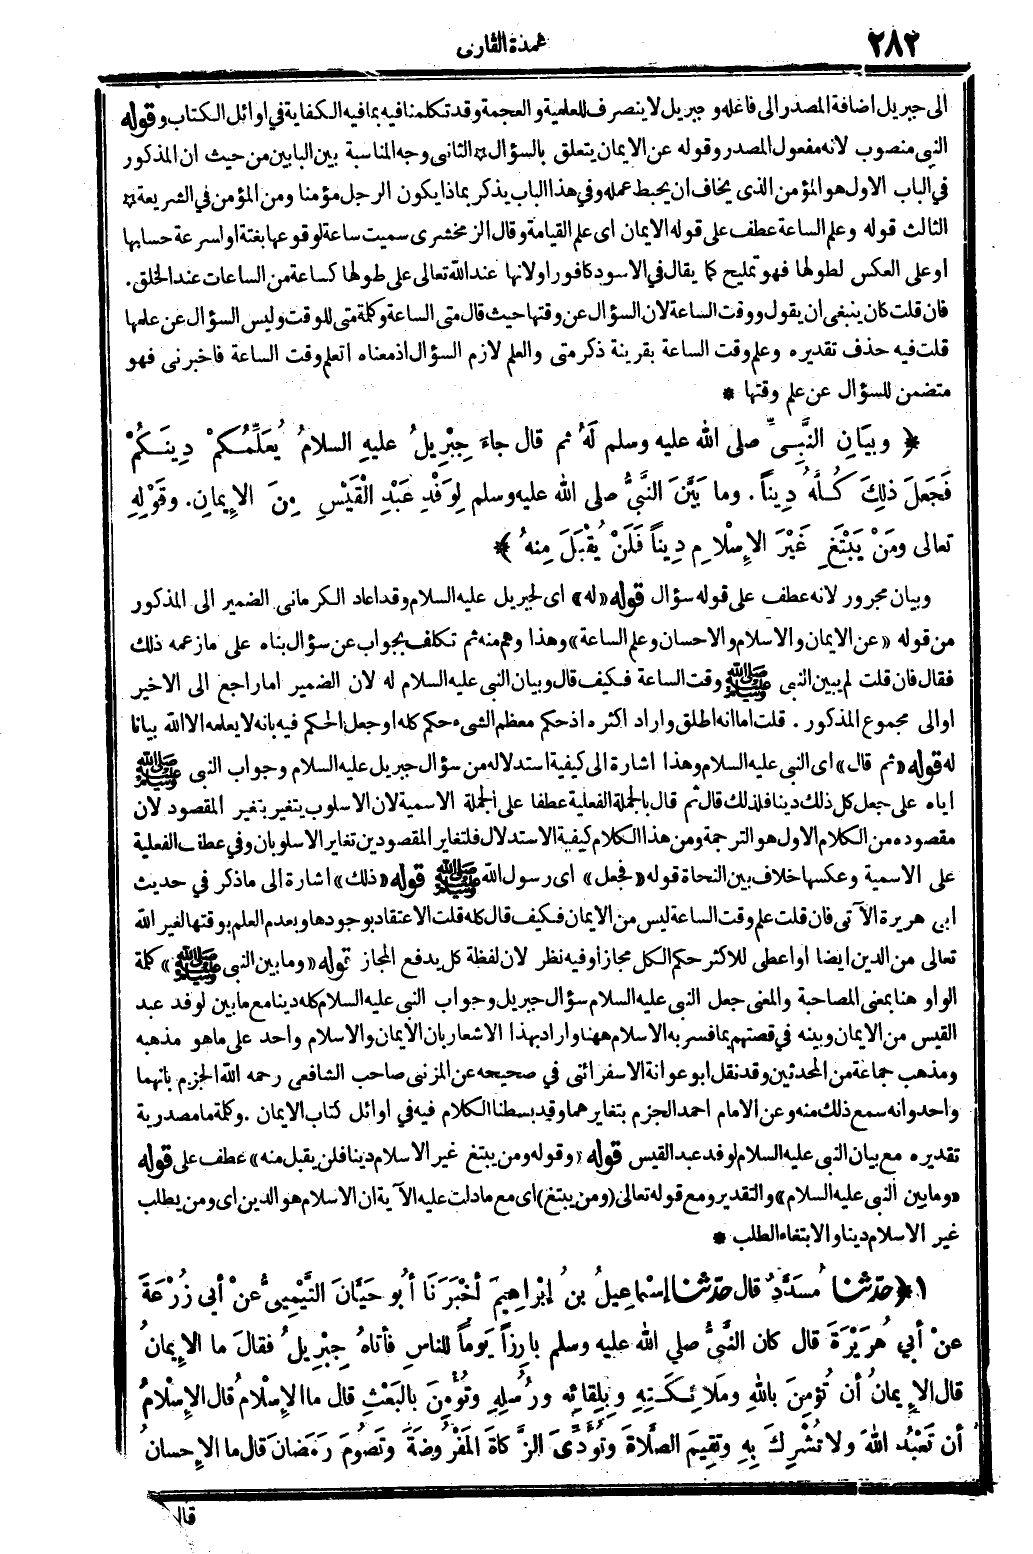 ٢٨٢
عمدة القارى
الى جبريل اضافة المصدر الى فاعله و جبريل لا ينصرف للعلمية والعجمة وقد تكلمنا فيه بما فيه الكفاية في اوائل الكتاب وقوله
النبي منصوب لانه مفعول المصدر وقوله عن الايمان يتعلق بالسؤال * الثانى وجه المناسبة بين البابين من حيث ان المذكور
في الباب الاول هو المؤمن الذى يخاف ان يحبط عمله وفي هذا الباب يذكر بماذا يكون الرجل مؤمنا ومن المؤمن في الشريعة *
الثالث قوله وعلم الساعة عطف على قوله الايمان اى علم القيامة وقال الزمخشرى سميت ساعة لوقوعها بغتة او لسرعة حسابها
او على العكس لطولها فهو تمليح كما يقال في الاسود كافور او لانها عند الله تعالى على طولها كساعة من الساعات عند الخلق .
فان قلت كان ينبغى ان يقول ووقت الساعة لان السؤال عن وقتها حيث قال متى الساعة وكلمة متى للوقت وليس السؤال عن علمها
قلت فيه حذف تقديره وعلم وقت الساعة بقرينة ذكر متى والعلم لازم السؤال اذ معناه اتعلم وقت الساعة فاخبرنى فهو
متضمن للسؤال عن علم وقتها *
﴿ وبيانِ النَّبِيِّ صلى الله عليه وسلم لَهُ ثم قال جاءَ جِبْرِيلُ عليهِ السلامُ يُعَلِّمُكمْ دِينَكُمْ
فَجَعَلَ ذلِكَ كُلَّهُ دِيناً . وما بَيَّنَ النَّبِيُّ صلى الله عليه وسلم لِوَفْدِ عَبْدِ الْقَيْسِ مِنَ الإِيمانِ. وقَوْلِهِ
تعالى ومَنْ يَبْتَغِ غَيْرَ الإِسْلاَمِ دِيناً فَلَنْ يُقْبَلَ مِنهُ ﴾
وبيان مجرور لانه عطف على قوله سؤال قوله «له» اى لجبريل عليه السلام وقد اعاد الكرمانى الضمير الى المذكور
من قوله «عن الايمان والاسلام والاحسان وعلم الساعة» وهذا وهم منه ثم تكلف بجواب عن سؤال بناه على ما زعمه ذلك
فقال فان قلت لم يبين النبى ﷺ وقت الساعة فكيف قال وبيان النبى عليه السلام له لان الضمير اما راجع الى الاخير
او الى مجموع المذكور . قلت اما انه اطلق واراد اكثره اذ حكم معظم الشىء حكم كله او جعل الحكم فيه بانه لا يعلمه الا الله بيانا
له قوله «ثم قال» اى النبى عليه السلام وهذا اشارة الى كيفية استدلاله من سؤال جبريل عليه السلام وجواب النبى ﷺ
اياه على جعل كل ذلك دينا فلذلك قال ثم قال بالجملة الفعلية عطفا على الجملة الاسمية لان الاسلوب يتغير بتغير المقصود لان
مقصوده من الكلام الاول هو الترجمة ومن هذا الكلام كيفية الاستدلال فلتغاير المقصودين تغاير الاسلوبان وفي عطف الفعلية
على الاسمية وعكسها خلاف بين النحاة قوله «فجعل» اى رسول الله ﷺ قوله «ذلك» اشارة الى ما ذكر في حديث
ابى هريرة الآتى فان قلت علم وقت الساعة ليس من الايمان فكيف قال كله قلت الاعتقاد بوجودها وبعدم العلم بوقتها لغير الله
تعالى من الدين ايضا او اعطى للاكثر حكم الكل مجازا وفيه نظر لان لفظة كل يدفع المجاز قوله «وما بين النبى ﷺ» كلمة
الواو هنا بمعنى المصاحبة والمعنى جعل النبى عليه السلام سؤال جبريل وجواب النبى عليه السلام كله دينا مع ما بين لوفد عبد
القيس من الايمان وبينه في قصتهم بما فسر به الاسلام ههنا واراد بهذا الاشعار بان الايمان والاسلام واحد على ما هو مذهبه
ومذهب جماعة من المحدثين وقد نقل ابو عوانة الاسفرائنى في صحيحه عن المزنى صاحب الشافعى رحمه الله الجزم بانهما
واحد وانه سمع ذلك منه وعن الامام احمد الجزم بتغايرهما وقد بسطنا الكلام فيه في اوائل كتاب الايمان . وكلمة ما مصدرية
تقديره مع بيان النبى عليه السلام لوفد عبد القيس قوله «وقوله ومن يبتغ غير الاسلام دينا فلن يقبل منه» عطف على قوله
«وما بين النبى عليه السلام» والتقدير ومع قوله تعالى (ومن يبتغ) اى مع ما دلت عليه الآية ان الاسلام هو الدين اى ومن يطلب
غير الاسلام دينا والابتغاء الطلب *
١ ﴿ حدثنا مُسَدَّدٌ قال حدثنا إِسْماعِيلُ بنُ إِبْراهِيمَ أخْبَرَنَا أبُو حَيَّانَ التَّيْمِيُّ عنْ أبى زُرْعَةَ
عنْ أبي هُرَيْرَةَ قال كان النَّبيُّ صلى الله عليه وسلم بارِزاً يَوماً للناسِ فأتاهُ جِبْرِيلُ فقالَ ما الإِيمانُ
قال الإِيمانُ أن تُؤمِنَ باللهِ وملاَئِكَتِهِ وبِلِقائِه ورُسُلِهِ وتُؤْمِنَ بالبَعْثِ قال ما الإِسْلامُ قال الإِسْلامُ
أن تَعْبُدَ اللهَ ولا تُشْرِكَ بِهِ وتقِيمَ الصَّلاَةَ وتُؤَدِّىَ الزَّكاةَ المَفْرُوضَةَ وتَصُومَ رَمَضَانَ قال ما الإِحسانُ
قال